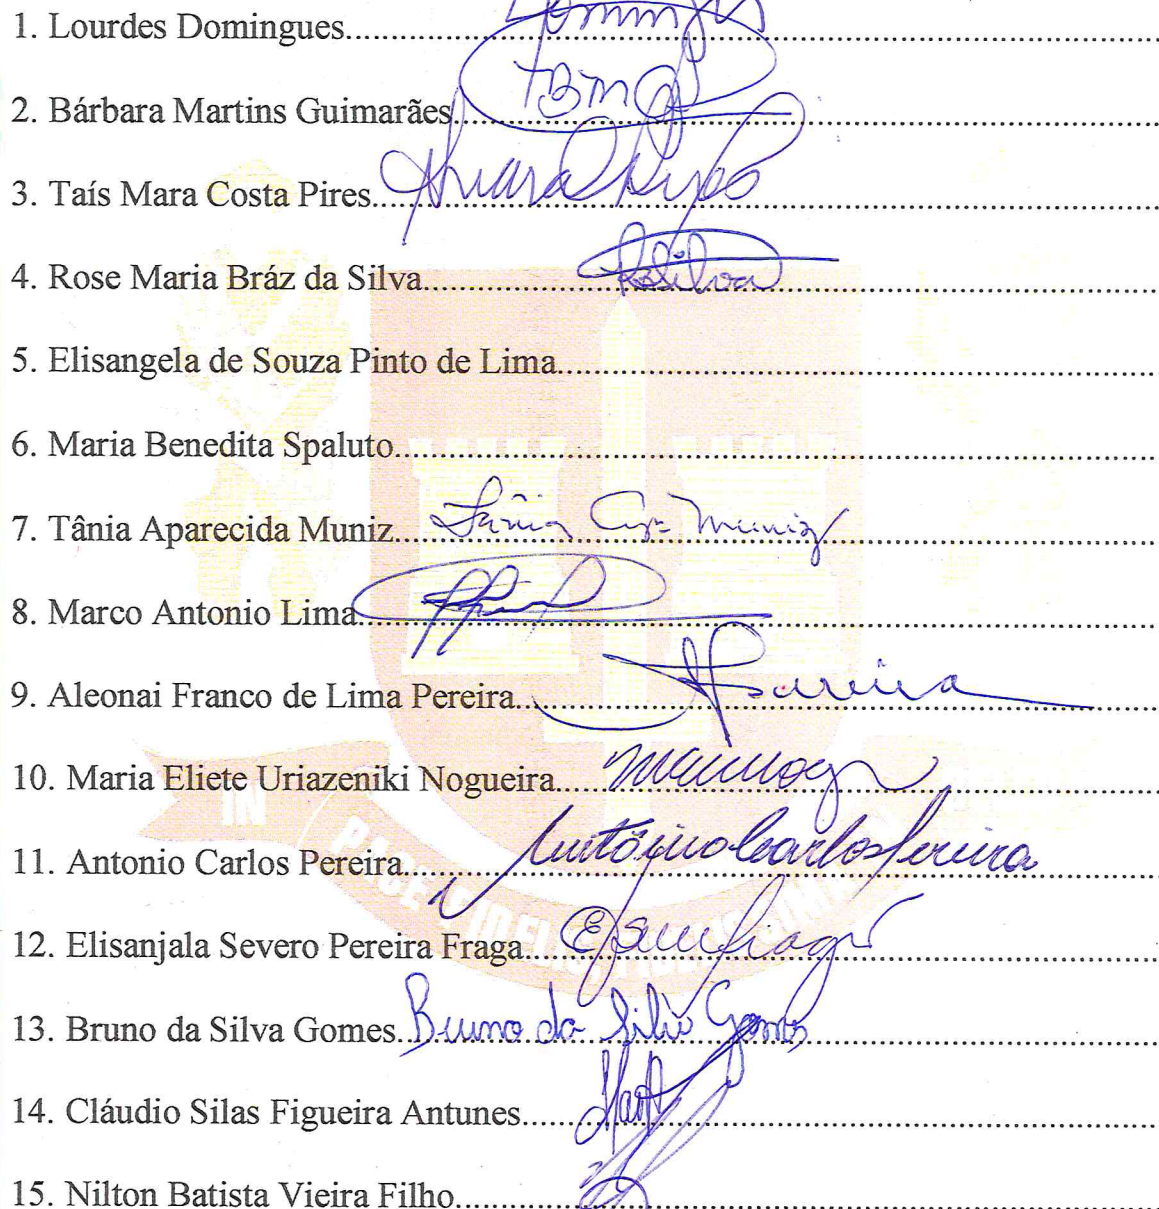 1. Lourdes Domingues
2. Bárbara Martins Guimarães
3. Taís Mara Costa Pires
4. Rose Maria Bráz da Silva RSilva
5. Elisangela de Souza Pinto de Lima
6. Maria Benedita Spaluto
7. Tânia Aparecida Muniz Tânia Ap. Muniz
8. Marco Antonio Lima
9. Aleonai Franco de Lima Pereira
10. Maria Eliete Uriazeniki Nogueira
IN
11. Antonio Carlos Pereira Antônio Carlos Pereira
PACE
12. Elisanjala Severo Pereira Fraga
13. Bruno da Silva Gomes Bruno da Silva Gomes
14. Cláudio Silas Figueira Antunes
15. Nilton Batista Vieira Filho